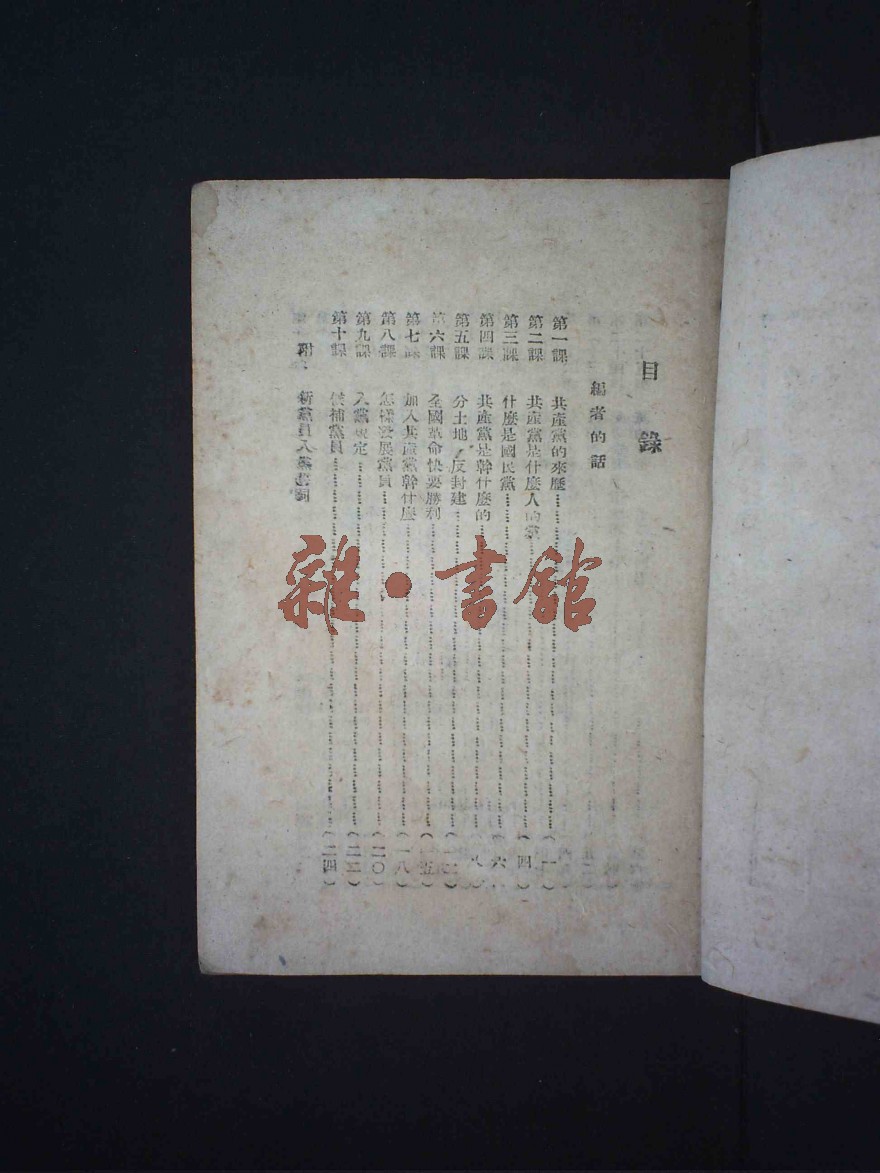 目錄
編者的話
第一課 共產黨的來歷……(一)
第二課 共產黨是什麼人的黨……(四)
第三課 什麼是國民黨……(六)
第四課 共產黨是幹什麼的……(八)
第五課 分土地,反封建……
第六課 全國革命快要勝利……(一五)
第七課 加入共產黨幹什麼……(一八)
第八課 怎樣發展黨員……(二〇)
第九課 入黨規定……(二二)
第十課 候補黨員……(二四)
附: 新黨員入黨誓詞
雜·書館